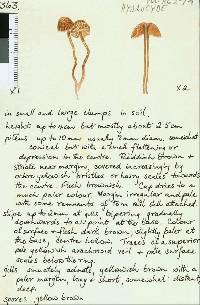 in small and large clumps in soil,
height up to 4cm but mostly about 2.5cm
pileus up to 10mm usually 8mm diam, somewhat
conical but with a small flattening or
depression in the centre. Reddish brown &
striate near margin, covered increasingly by
ochre yellowish bristles or hairy scales towards
the centre. Flesh brownish. Cap dries to a
much paler colour. Margin irregular and pale
with some remnants of torn veil still attached
stipe up to 2mm at gills tapering gradually
downwards to a point at the base. Colour
of surface & flesh dark brown, slightly paler at
the base, centre hollow. Traces of a superior
pale yellowish arachnoid veil & pale surface
scales below the ring.
gills adnate, yellowish brown with a
paler margin, long & short, somewhat distant,
deep.
spores yellow brown
X1
X2